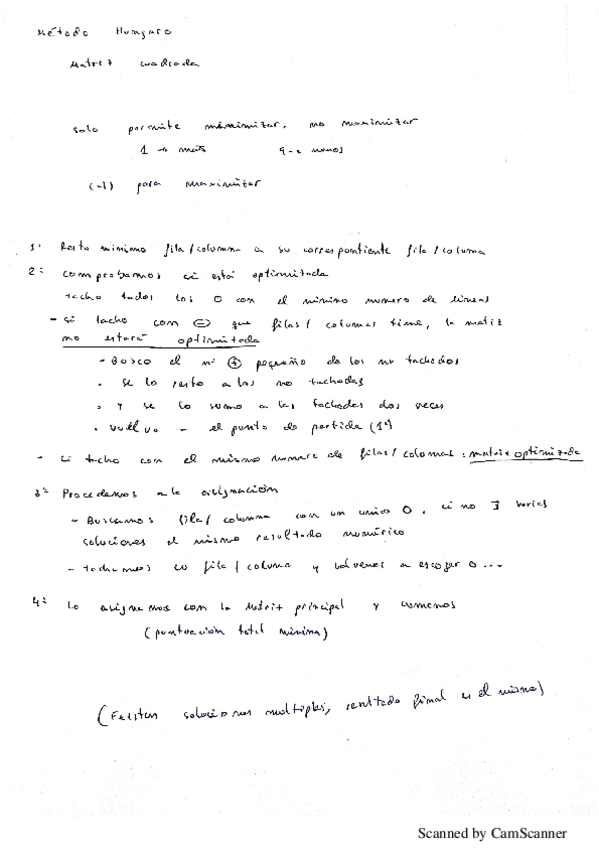 Método Hungaro
Matriz cuadrada
solo permite minimizar, no maximizar
1 → más 9 → menos
(-1) para maximizar
1º Resto minimo fila/columna a su correspontiente fila/coluna
2º comprobamos si está optimitada
tacho todos los 0 con el minimo numero de lineas
- si tacho con ⊖ que filas/columas tiene, la matiz
no estará optimitada
- Busco el nº ⊕ pequeño de los no tachados
- se lo resto a los no tachados
- Y se lo sumo a las tachadas dos veces
- vuelvo - el punto de partida (1º)
- si tacho con el mismo numero de filas/colomas: matriz optimizada
3º Procedemos a la asignación
- Buscamos fila/columna con un unico 0, si no ∃ varias
soluciones el mismo resultado numérico
- tachamos fila/coluna y volvemos a escoger 0 ...
4º Lo asignemos con la Matriz principal y sumamos
(puntuación total minima)
(Existen soluciones multiples, resultado final es el mismo)
Scanned by CamScanner